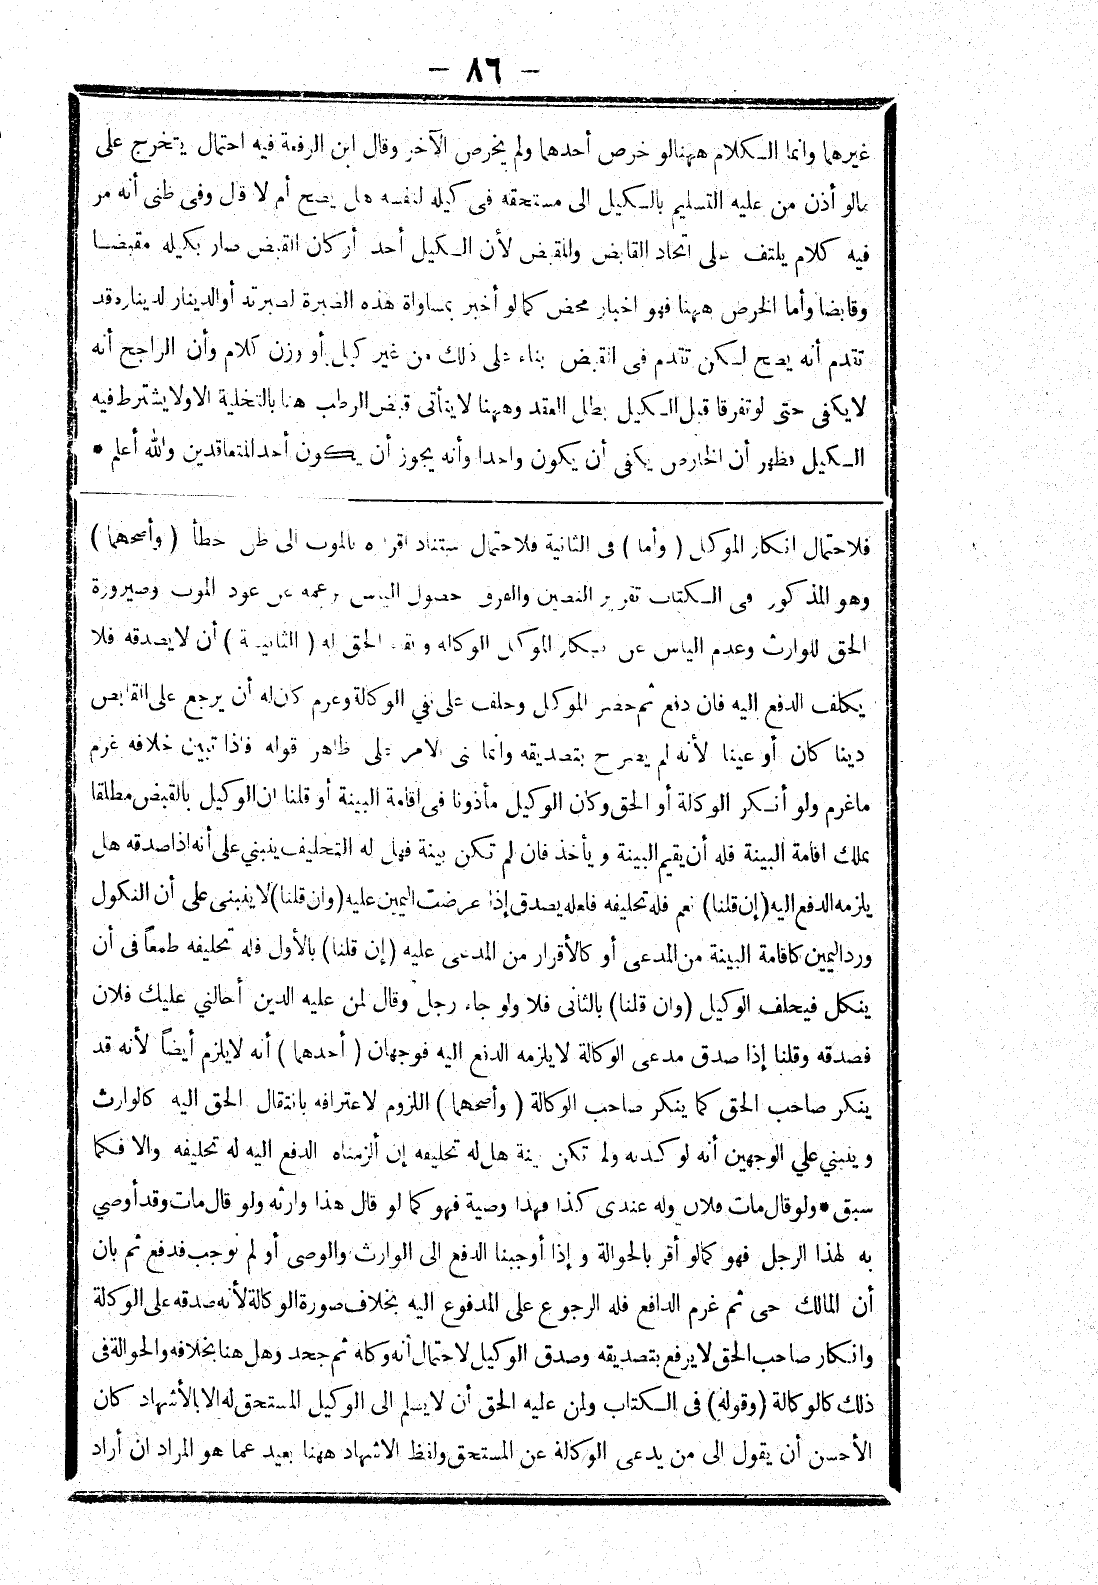 - ٨٦ -
غيرهما وانما الكلام ههنالو خرص أحدهما ولم يخرص الآخر وقال ابن الرفعة فيه احتمال يتخرج على
مالو أذن من عليه التسليم بالكيل الى مستحقه فى كيله لنفسه هل يصح أم لا قال وفى ظنى أنه مر
فيه كلام يلتف على اتحاد القابض والمقبض لأن الكيل أحد أركان القبض صار بكيله مقبضا
وقابضا وأما الخرص ههنا فهو اخبار محض كمالو أخبر بمساواة هذه الصبرة لصبرته أوالدينار لديناره وقد
تقدم أنه يصح لكن تقدم فى القبض بناء على ذلك من غير كيل أو وزن كلام وأن الراجح أنه
لايكفى حتى لوتفرقا قبل الكيل بطل العقد وههنا لايتأتى قبض الرطب هنا بالتخلية الاولايشترط فيه
الكيل فظهر أن الخارص يكفى أن يكون واحدا وأنه يجوز أن يكون أحد المتعاقدين والله أعلم *
فلاحتمال انكار الموكل ( وأما ) فى الثانية فلاحتمال استناد اقراره بالموت الى ظن خطأ ( وأصحهما )
وهو المذكور فى الكتاب تقرير النصين والفرق حصول اليأس بزعمه عن عود الموت وصيرورة
الحق للوارث وعدم اليأس عن انكار الموكل الوكالة وبقاء الحق له ( الثانية ) أن لايصدقه فلا
يكلف الدفع اليه فان دفع ثم حضر الموكل وحلف على نفي الوكالة وغرم كان له أن يرجع على القابض
دينا كان أو عينا لأنه لم يصرح بتصديقه وانما بنى الامر على ظاهر قوله فاذا تبين خلافه غرم
ماغرم ولو أنكر الوكالة أو الحق وكان الوكيل مأذونا فى اقامة البينة أو قلنا ان الوكيل بالقبض مطلقا
يملك اقامة البينة فله أن يقيم البينة ويأخذ فان لم تكن بينة فهل له التحليف ينبني على أنه اذا صدقه هل
يلزمه الدفع اليه (إن قلنا) نعم فله تحليفه فلعله يصدق إذا عرضت اليمين عليه (وان قلنا) لا ينبنى على أن النكول
ورد اليمين كاقامة البينة من المدعى أو كالأقرار من المدعى عليه (إن قلنا) بالأول فله تحليفه طمعاً فى أن
ينكل فيحلف الوكيل (وان قلنا) بالثانى فلا ولو جاء رجل وقال لمن عليه الدين أحالني عليك فلان
فصدقه وقلنا إذا صدق مدعى الوكالة لايلزمه الدفع اليه فوجهان ( أحدهما ) أنه لايلزم أيضاً لأنه قد
ينكر صاحب الحق كما ينكر صاحب الوكالة ( وأصحهما ) اللزوم لاعترافه بانتقال الحق اليه كالوارث
وينبني علي الوجهين أنه لو كذبه ولم تكن بينة هل له تحليفه إن ألزمناه الدفع اليه له تحليفه والا فكما
سبق * ولو قال مات فلان وله عندى كذا فهذا وصية فهو كما لو قال هذا وارثه ولو قال مات وقد أوصي
به لهذا الرجل فهو كمالو أقر بالحوالة و إذا أوجبنا الدفع الى الوارث والوصى أو لم نوجب فدفع ثم بان
أن المالك حى ثم غرم الدافع فله الرجوع على المدفوع اليه بخلاف صورة الوكالة لأنه صدقه على الوكالة
وانكار صاحب الحق لايرفع بتصديقه وصدق الوكيل لاحتمال أنه وكله ثم جحد وهل هنا بخلافه والحوالة فى
ذلك كالوكالة (وقوله) فى الكتاب ولمن عليه الحق أن لايسلم الى الوكيل المستحق له الا بالأشهاد كان
الأحسن أن يقول الى من يدعى الوكالة عن المستحق ولفظ الاشهاد ههنا بعيد عما هو المراد ان أراد